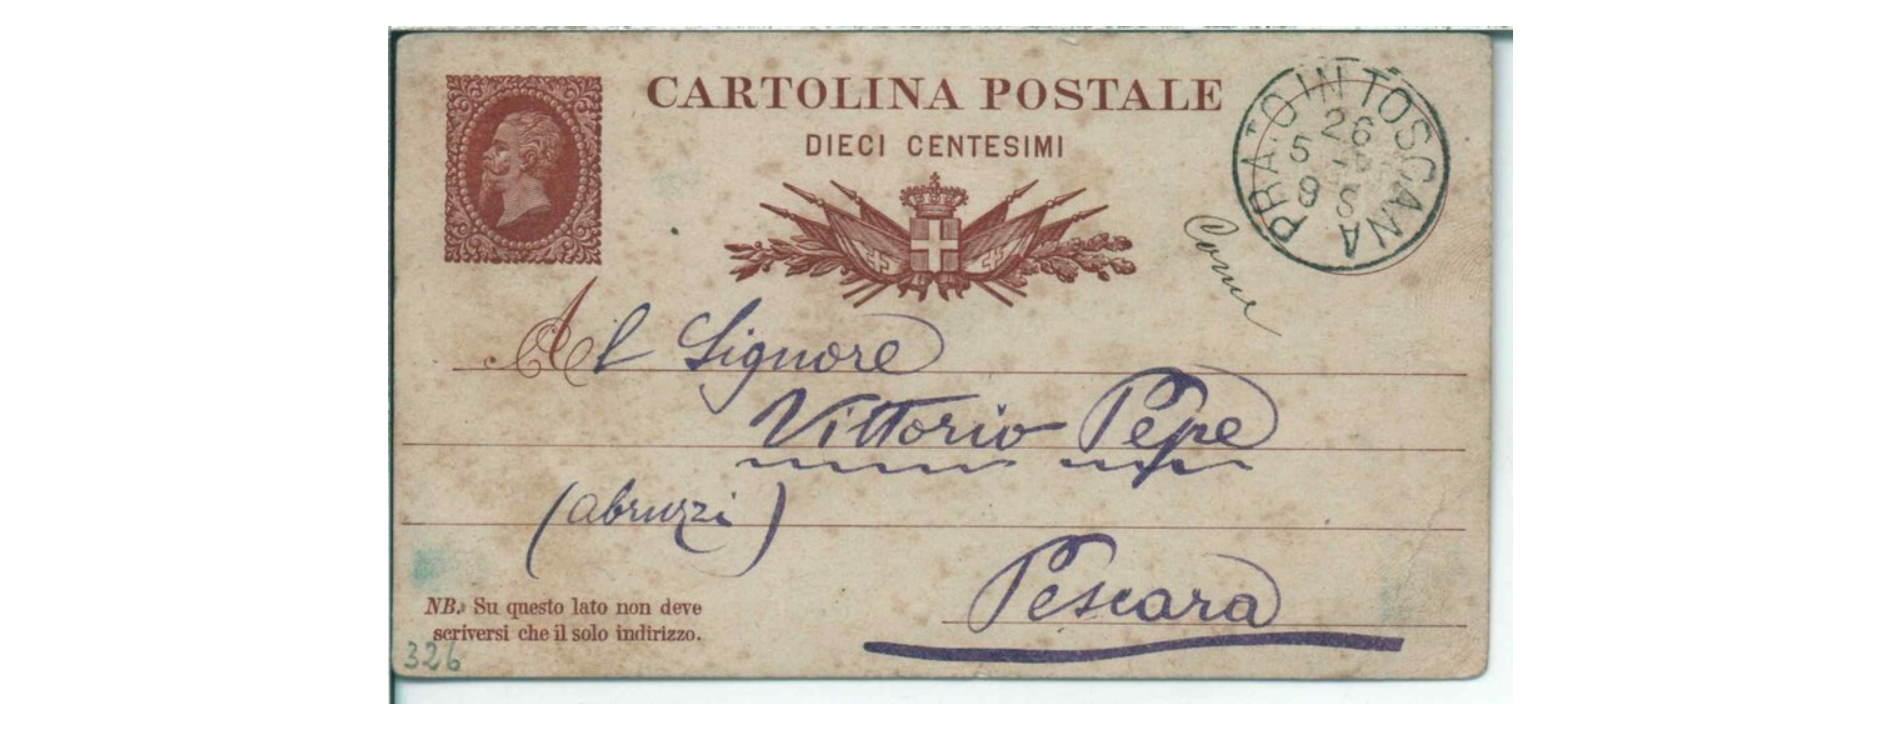 CARTOLINA POSTALE
DIECI CENTESIMI
PRATO IN TOSCANA
26
5
9 8
Al Signore
Vittorio Pepe
(Abruzzi)
Pescara
NB. Su questo lato non deve
scriversi che il solo indirizzo.
326